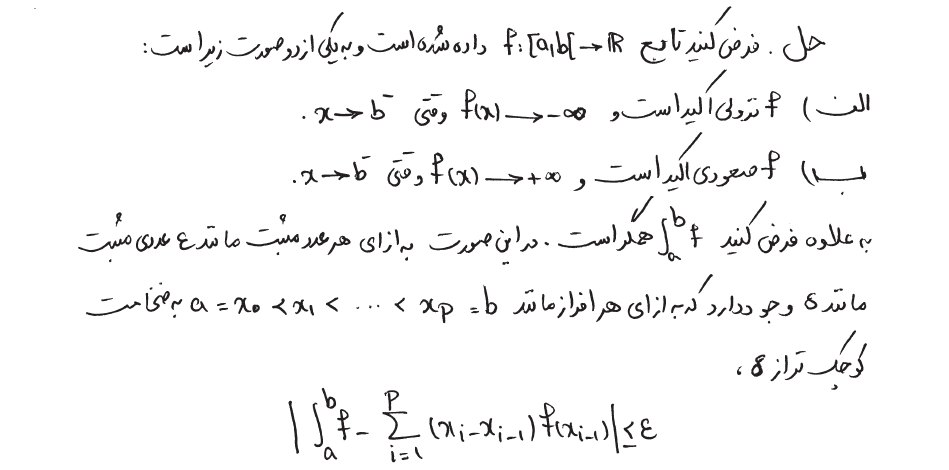 حل . فرض کنید تابع f:[a,b[→ℝ داده شده است و به یکی از دو صورت زیر است :
الف) f نزولی اکید است و f(x)→-∞ وقتی x→b⁻ .
ب) f صعودی اکید است و f(x)→+∞ وقتی x→b⁻ .
به علاوه فرض کنید ∫_a^b f همگر است . در این صورت به ازای هر عدد مثبت مانند ε عددی مثبت
مانند δ وجود دارد که به ازای هر افراز مانند a = x₀ < x₁ < ... < x_p = b به ضخامت
کوچک تر از δ ،
|∫_a^b f - Σ_{i=1}^p (x_i - x_{i-1}) f(x_{i-1})| ≤ ε